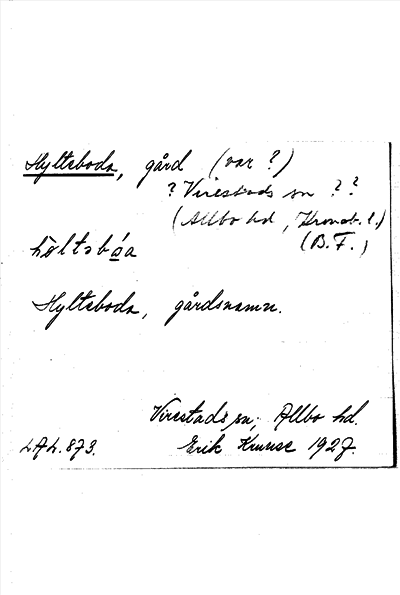 Hyltaboda, gård (var?)
? Virestads sn ??
(Allbo hd, Kronob. l.)
(B.F.)
høltsbóa
Hyltaboda, gårdsnamn.
Virestads sn, Allbo hd.
LAL. 873. Erik Kruuse 1927.